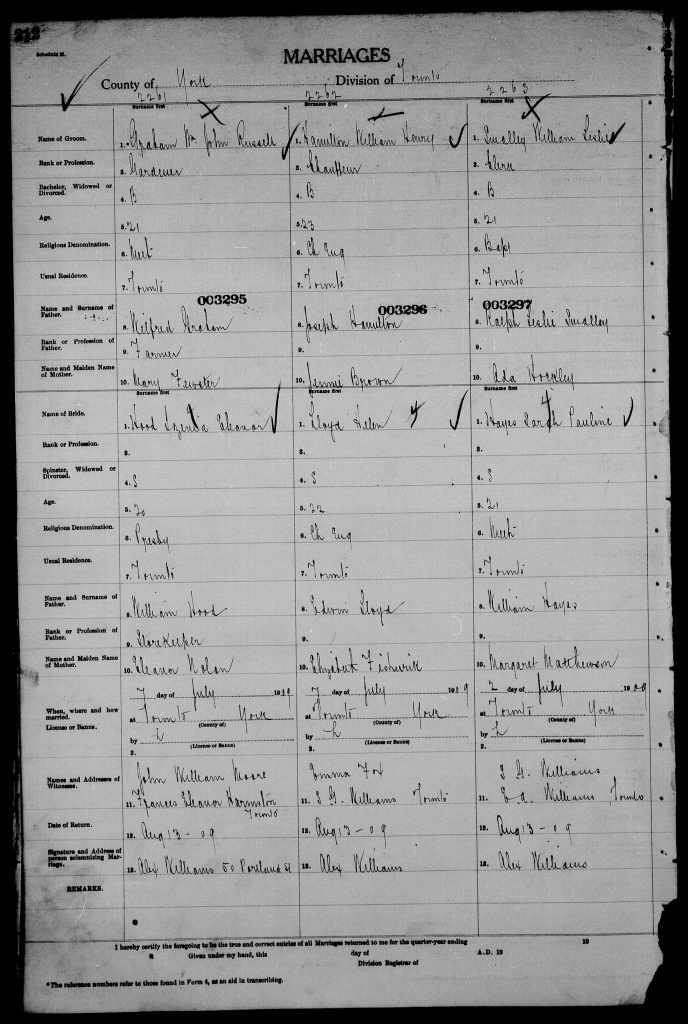 212
Schedule B.
MARRIAGES
County of York Division of Toronto
2261 2262 2263
Surname first Surname first Surname first
Name of Groom. 1. Graham Wm John Russell 1. Hamilton William Henry 1. Smalley William Leslie
Rank or Profession. 2. Gardener 2. Chauffeur 2. Clerk
Bachelor, Widowed or Divorced. 4. B 4. B 4. B
Age. 5. 21 5. 23 5. 21
Religious Denomination. 6. Meth 6. Ch Eng 6. Bapt
Usual Residence. 7. Toronto 7. Toronto 7. Toronto
003295 003296 003297
Name and Surname of Father. 8. Wilfred Graham 8. Joseph Hamilton 8. Ralph Leslie Smalley
Rank or Profession of Father. 9. Farmer 9. 9.
Name and Maiden Name of Mother. 10. Mary Fewster 10. Jennie Brown 10. Ada Hockley
Surname first Surname first Surname first
Name of Bride. 1. Hood Eleanor 1. Lloyd Helen 4 1. Hayes Sarah Pauline
Rank or Profession. 2. 2. 2.
Spinster, Widowed or Divorced. 4. S 4. S 4. S
Age. 5. 20 5. 22 5. 21
Religious Denomination. 6. Presby 6. Ch Eng 6. Meth
Usual Residence. 7. Toronto 7. Toronto 7. Toronto
Name and Surname of Father. 8. William Hood 8. Edwin Lloyd 8. William Hayes
Rank or Profession of Father. 9. Storekeeper 9. 9.
Name and Maiden Name of Mother. 10. Eleanor Nolan 10. Elizabeth 10. Margaret Matthewson
7 day of July 1909 7 day of July 1909 2 day of July 1909
When, where and how married. at Toronto York at Toronto York at Toronto York
(County of) (County of) (County of)
License or Banns. by L by L by L
(License or Banns) (License or Banns) (License or Banns)
Names and Addresses of Witnesses. John William Moore Emma Fox S. G. Williams
11. Frances Eleanor Harmston Toronto 11. S. G. Williams Toronto 11. E. A. Williams, Toronto
Date of Return. 12. Aug 13 - 09 12. Aug 13 - 09 12. Aug 13 - 09
Signature and Address of person solemnizing Marriage. 13. Alex Williams 50 Portland St 13. Alex Williams 13. Alex Williams
REMARKS.
I hereby certify the foregoing to be the true and correct entries of all Marriages returned to me for the quarter-year ending 19
Given under my hand, this day of A.D. 19
Division Registrar of
*The reference numbers refer to those found in Form 4, as an aid in transcribing.